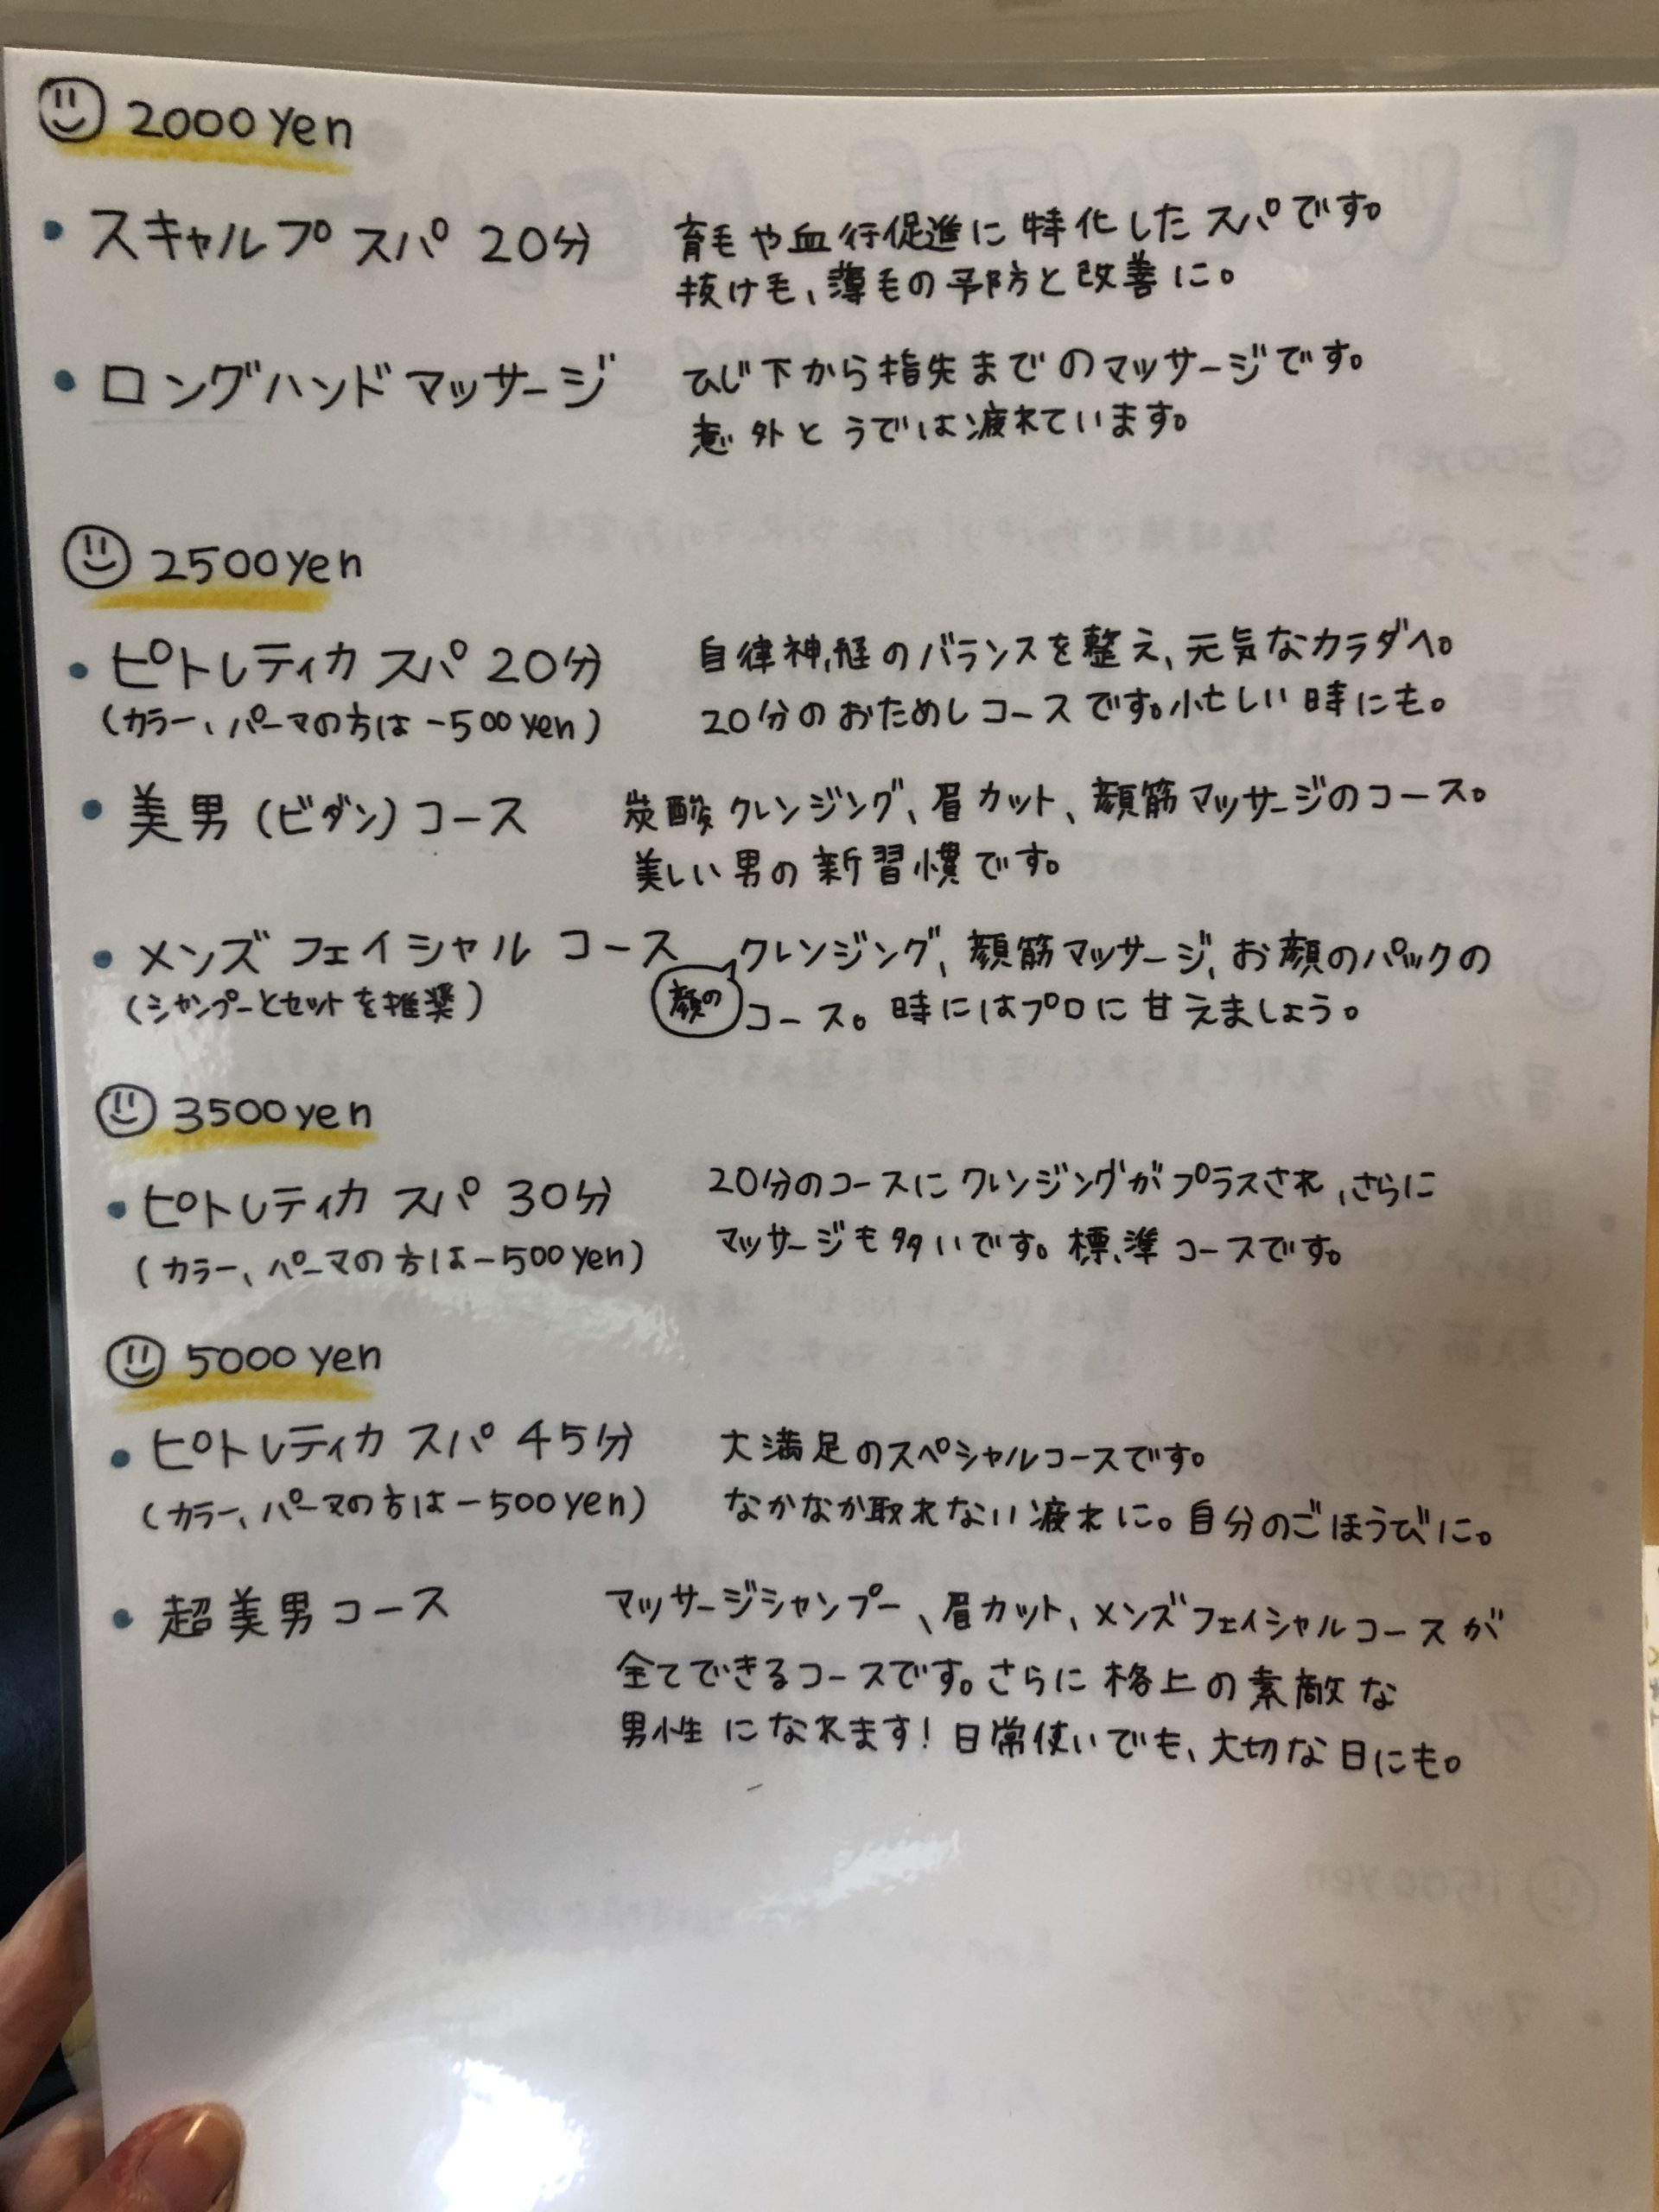 2000yen
・スキャルプ スパ 20分
育毛や血行促進に特化したスパです。
抜け毛、薄毛の予防と改善に。
・ロングハンドマッサージ
ひじ下から指先までのマッサージです。
意外とうでは疲れています。
2500yen
・ピトレティカ スパ 20分
(カラー、パーマの方は-500yen)
自律神経のバランスを整え、元気なカラダへ。
20分のおためしコースです。忙しい時にも。
・美男(ビダン)コース
炭酸クレンジング、眉カット、顔筋マッサージのコース。
美しい男の新習慣です。
・メンズ フェイシャル コース
(シャンプーとセットを推奨)
顔の
クレンジング、顔筋マッサージ、お顔のパックの
コース。時にはプロに甘えましょう。
3500yen
・ピトレティカ スパ 30分
(カラー、パーマの方は-500yen)
20分のコースにクレンジングがプラスされ、さらに
マッサージも多いです。標準コースです。
5000yen
・ピトレティカ スパ 45分
(カラー、パーマの方は-500yen)
大満足のスペシャルコースです。
なかなか取れない疲れに。自分のごほうびに。
・超美男コース
マッサージシャンプー、眉カット、メンズフェイシャルコースが
全てできるコースです。さらに格上の素敵な
男性になれます!日常使いでも、大切な日にも。